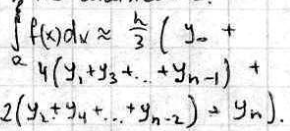 ∫ₐᵇ f(x)dx ≈ h/3 ( y₀ +
4(y₁+y₃+...+yₙ₋₁) +
2(y₂+y₄+...+yₙ₋₂) + yₙ).